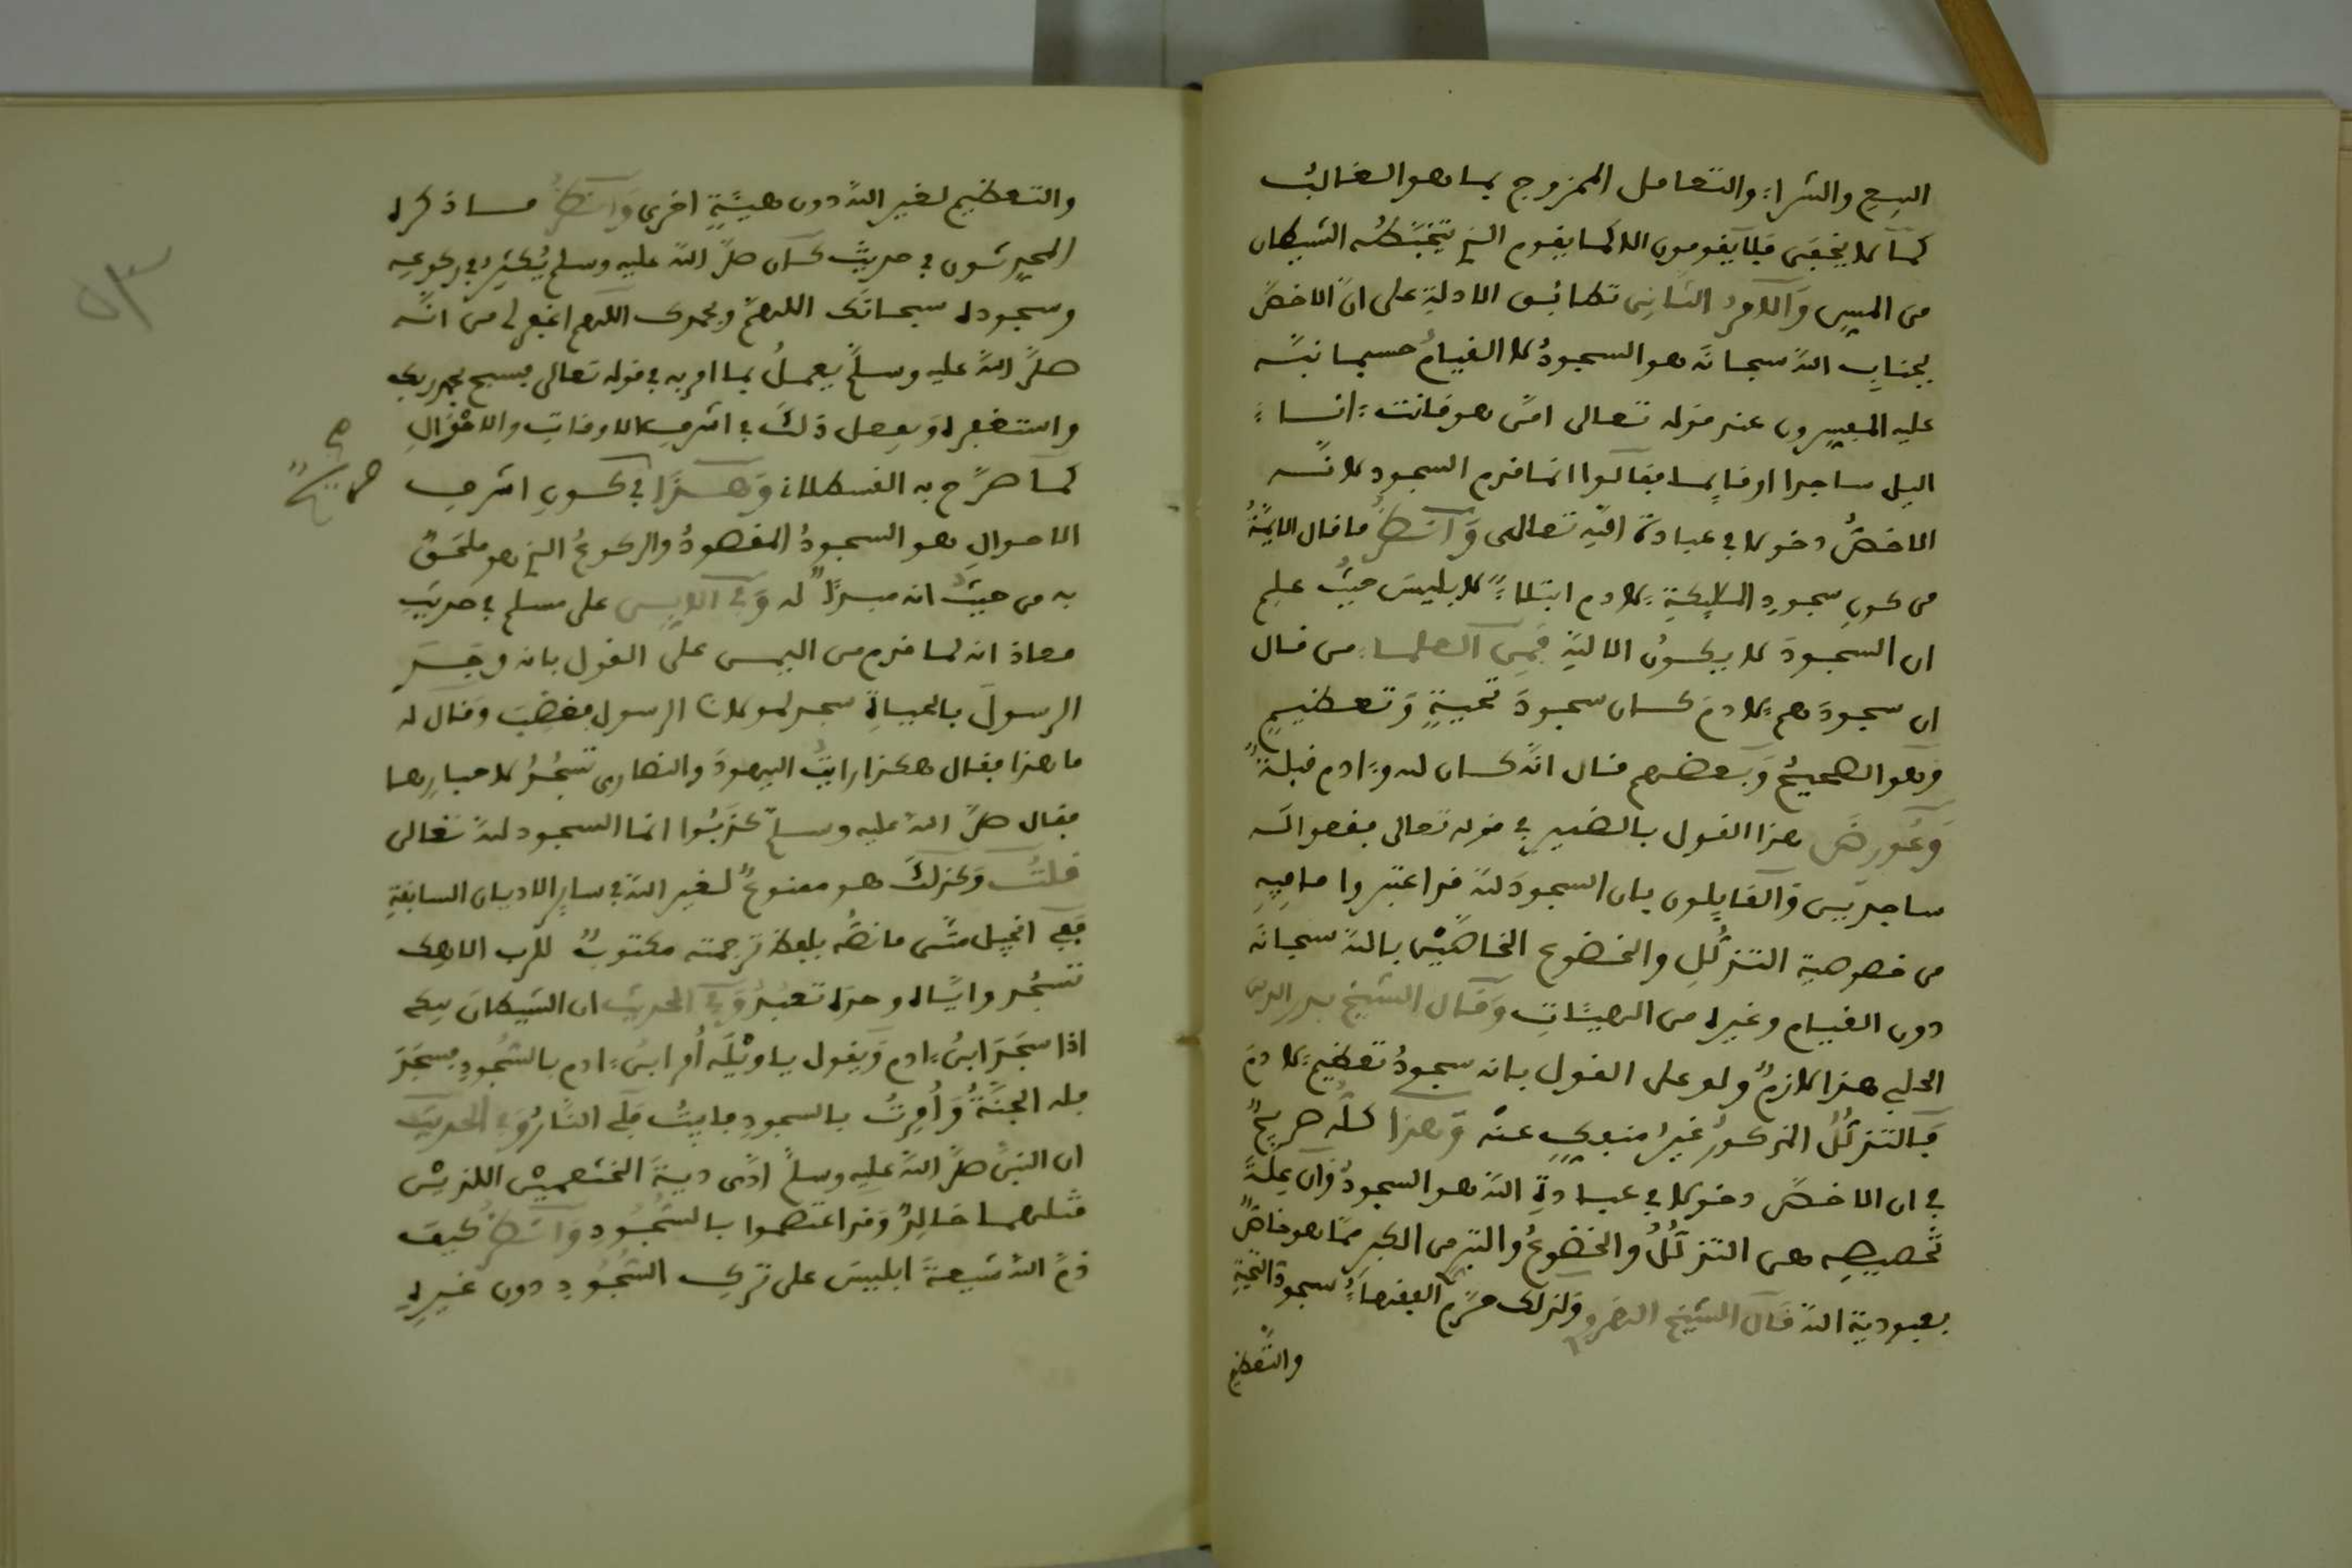 البيع والشراء والتعامل الممزوج بما هو الغالب
كما لا يخفى فلا يقومون الا كما يقوم الذي يتخبطه الشيطان
من المس والامر الثاني تطابق الادلة على انّ الاخصّ
بجناب الله سبحانه هو السجود لا القيام حسبما نبّه
عليه المفسرون عند قوله تعالى امّن هو قانت ءاناء
اليل ساجدا او قايما فقالوا انما قدم السجود لانّه
الاخصّ دخولا في عبادة الله تعالى وانظر ما قال الايمّة
من كون سجود الملايكة لادم ابتلاءً لابليس حيث علم
ان السجود لا يكون الا لله فمن العلماء من قال
ان سجودهم لادم كان سجود تحية وتعظيم
وهو الصحيح وبعضهم قال انّه كان لله وءادم قبلةً
وعورض هذا القول بالضمير في قوله تعالى فقعوا له
ساجدين والقايلون بان السجود لله قد اعتبروا ما فيه
من خصوصية التذلّل والخضوع الخاصّين بالله سبحانه
دون القيام وغيره من الهيئات وقال الشيخ بدر الدين
الحلبي هذا لازم ولو على القول بانه سجود تعظيم لادم
فالتذلّل المذكور غير منفكّ عنه وهذا كلّه صريح
في ان الاخصّ دخولا في عبادة الله هو السجود وان علة
تخصيصه هي التذلّل والخضوع والتبري من الكبر ممّا هو خاصّ
بعبودية الله قال الشيخ ولذلك حرّم الفقهاء سجود التحية
والتعظيم
والتعظيم لغير الله دون هيئة اخرى وانظر ما ذكره
المحدثون في حديث كان صلّى الله عليه وسلم يُكثر في ركوعه
وسجوده سبحانك اللهمّ وبحمدك اللهم اغفر لي من انّه
صلّى الله عليه وسلّم يعمل بما امر به في قوله تعالى فسبح بحمد ربك
واستغفره ويفعل ذلك في اشرف الاوقات والاحوال
كما صرّح به القسطلاني وهذا في كون اشرف
صريح
الاحوال هو السجود المقصود والركوع الذي هو ملحق
به من حيث انه مبدأ له وفي الابي على مسلم في حديث
معاذ انه لما قدم من اليمن على القول بانه وجد
الرسول بالحياة سجد لمولانا الرسول فغضب وقال له
ما هذا فقال هكذا رايت اليهود والنصارى تسجد لاحبارها
فقال صلّى الله عليه وسلّم كذبوا انما السجود لله تعالى
قلت وكذلك هو ممنوع لغير الله في ساير الاديان السابقة
ففي انجيل متّى ما نصّه بلفظ ترجمته مكتوب للرب الاهك
تسجد واياه وحده تعبد وفي الحديث ان الشيطان يبكي
اذا سجد ابن ءادم ويقول يا ويله أُمر ابن ءادم بالسجود فسجد
فله الجنة وأُمرت بالسجود فابيت فلي النار وفي الحديث
ان النبي صلّى الله عليه وسلّم ادّى دية الخثعميين اللذين
قتلهما خالد وقد اعتصموا بالسجود وانظر كيف
ذمّ الله شيعة ابليس على ترك السجود دون غيره